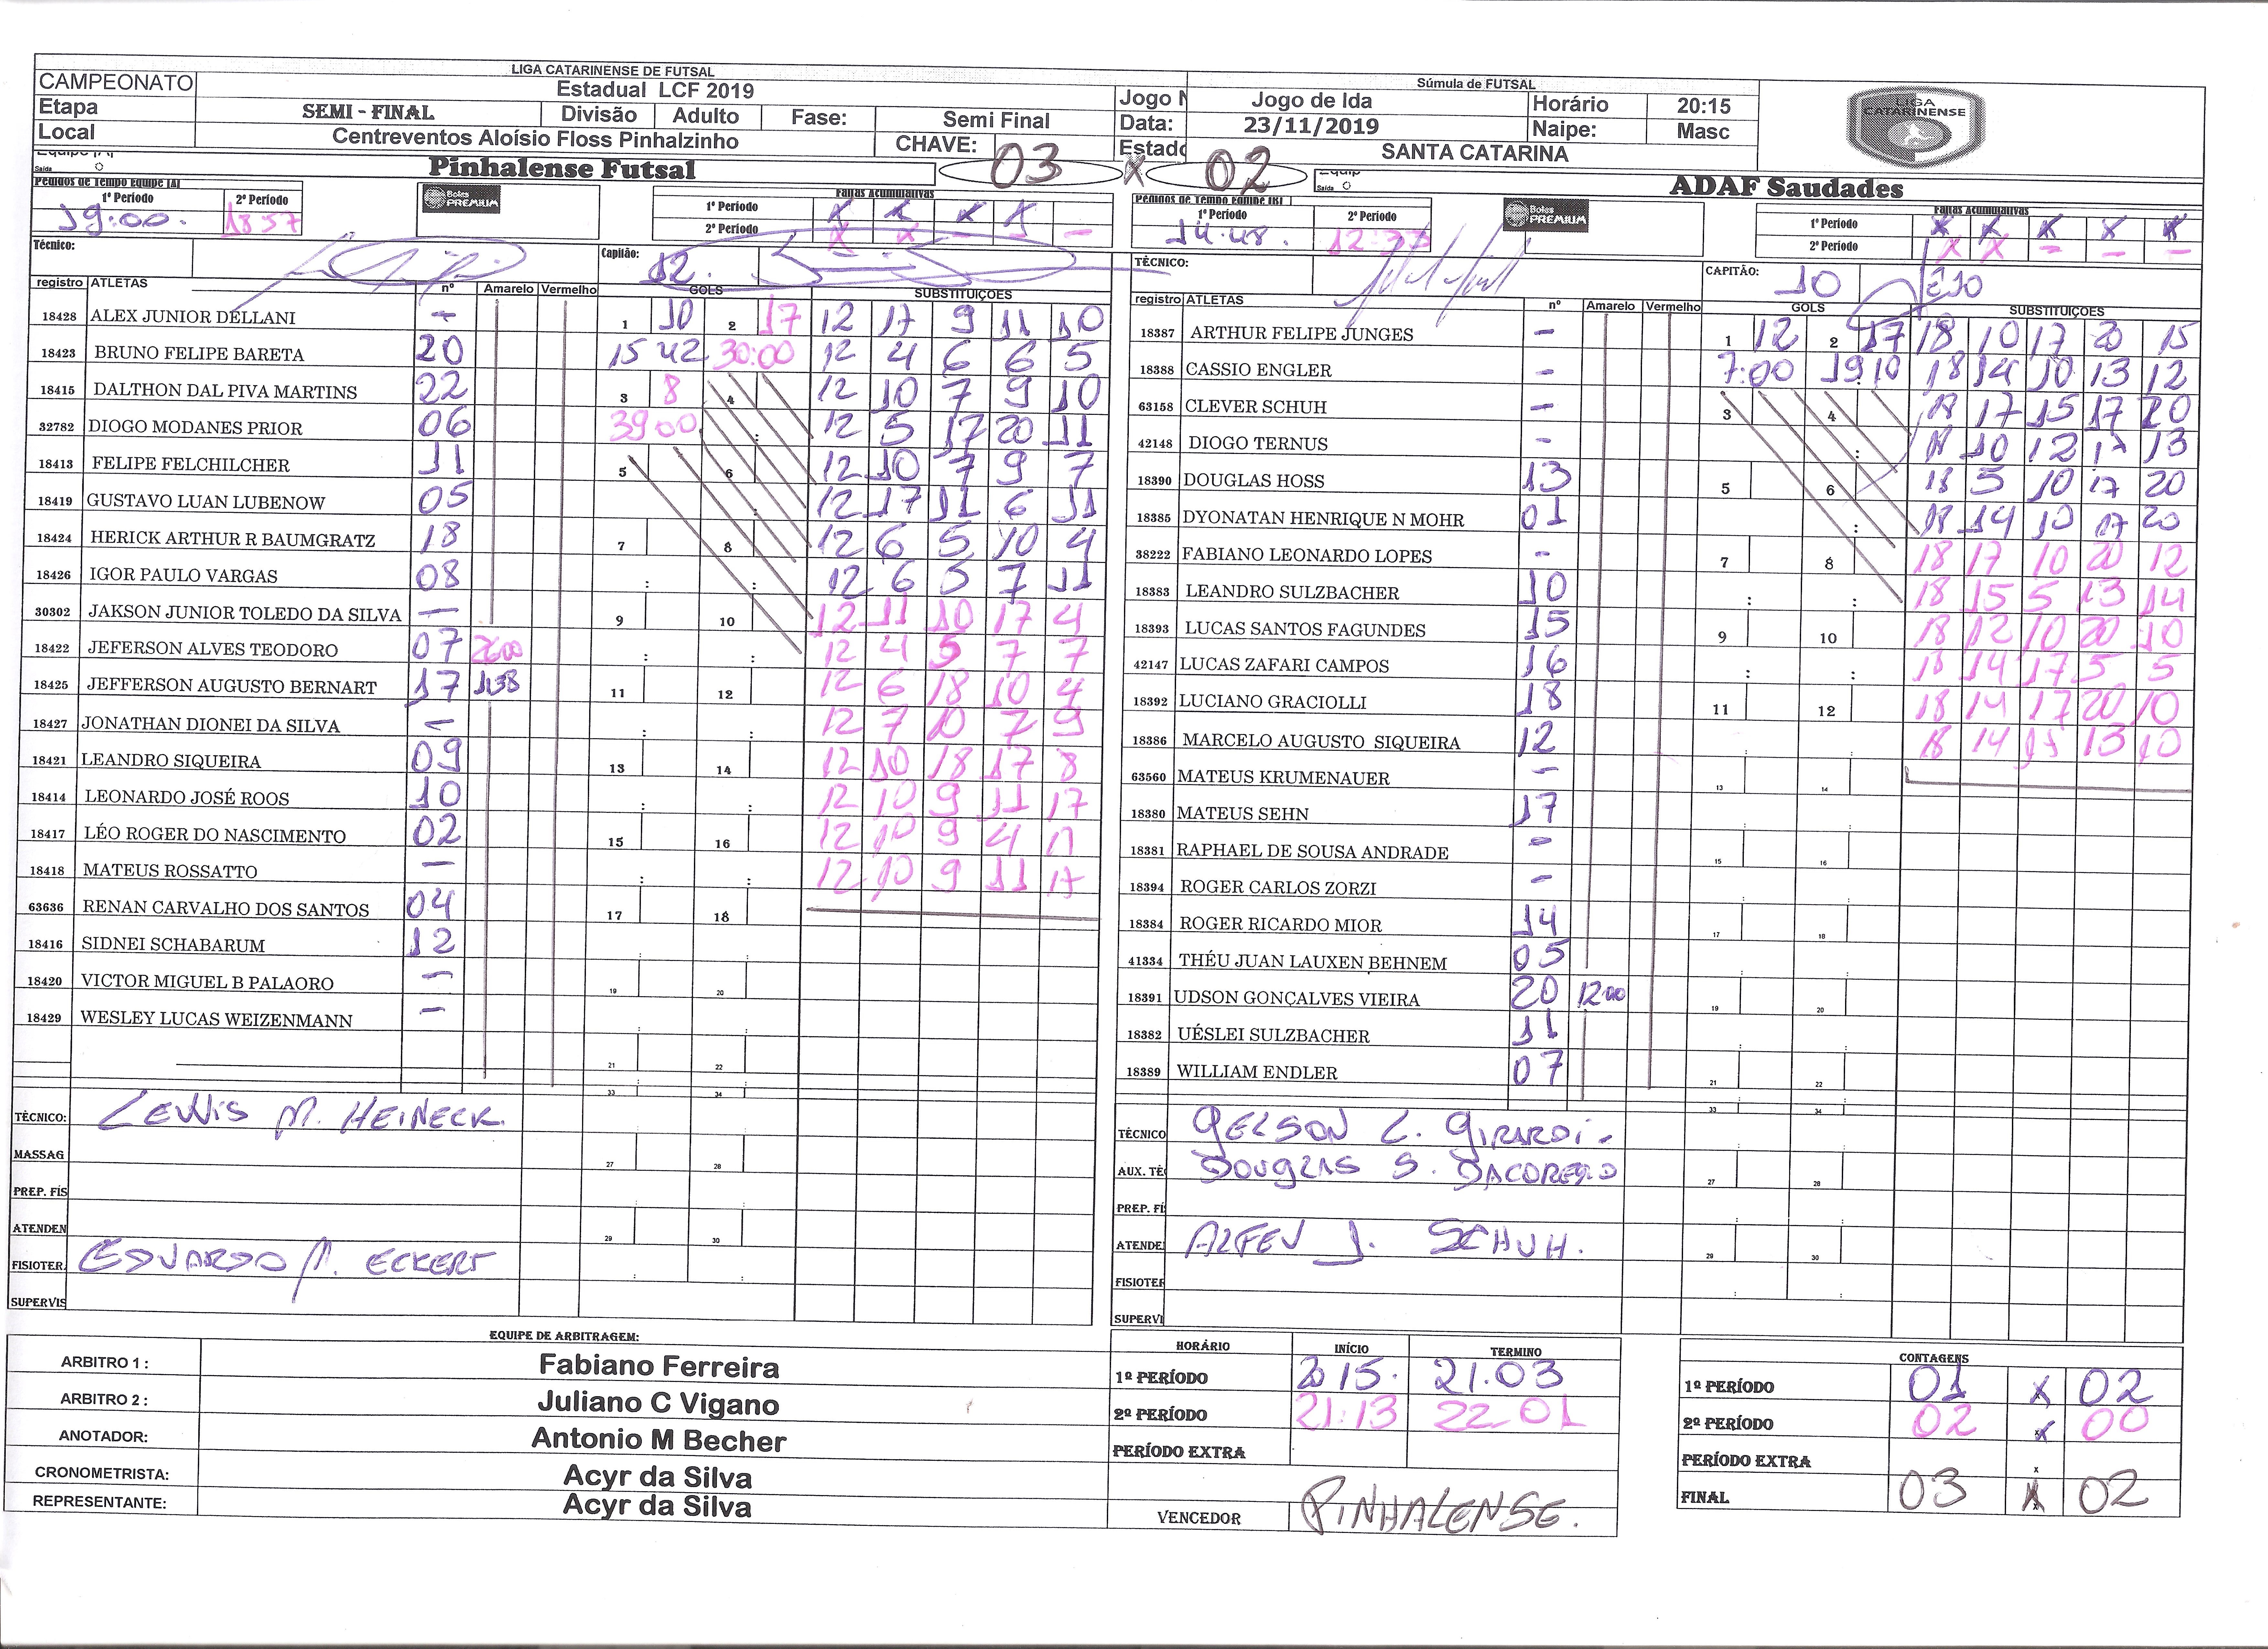 LIGA CATARINENSE DE FUTSAL
CAMPEONATO Estadual LCF 2019
Etapa SEMI - FINAL Divisão Adulto Fase: Semi Final
Local Centreventos Aloísio Floss Pinhalzinho CHAVE:
Súmula de FUTSAL
Jogo N Jogo de Ida Horário 20:15
Data: 23/11/2019 Naipe: Masc
Estado SANTA CATARINA
LIGA CATARINENSE
Pinhalense Futsal 03 X 02 ADAF Saudades
Saída
Pedidos de Tempo Equipe [A]
1º Período 2º Período
19:00. 18 57
Bolas PREMIUM
Faltas Acumulativas
1º Período X X X X
2º Período X X - - -
Técnico: Capitão: 12.
registro ATLETAS nº Amarelo Vermelho GOLS SUBSTITUIÇÕES
18428 ALEX JUNIOR DELLANI - 1 10 2 17 12 17 9 11 10
18423 BRUNO FELIPE BARETA 20 15 42 30:00 12 4 6 6 5
18415 DALTHON DAL PIVA MARTINS 22 3 8 4 12 10 7 9 10
32782 DIOGO MODANES PRIOR 06 39 00 12 5 17 20 11
18413 FELIPE FELCHILCHER 11 5 6 12 10 7 9 7
18419 GUSTAVO LUAN LUBENOW 05 12 17 11 6 11
18424 HERICK ARTHUR R BAUMGRATZ 18 7 8 12 6 5 10 4
18426 IGOR PAULO VARGAS 08 12 6 5 7 11
30302 JAKSON JUNIOR TOLEDO DA SILVA - 9 10 12 11 10 17 4
18422 JEFERSON ALVES TEODORO 07 26:00 12 4 5 7 7
18425 JEFFERSON AUGUSTO BERNART 17 11:38 11 12 12 6 18 10 4
18427 JONATHAN DIONEI DA SILVA - 12 7 10 7 9
18421 LEANDRO SIQUEIRA 09 13 14 12 10 18 17 8
18414 LEONARDO JOSÉ ROOS 10 12 10 9 11 17
18417 LÉO ROGER DO NASCIMENTO 02 15 16 12 10 9 4 17
18418 MATEUS ROSSATTO - 12 10 9 11 17
63636 RENAN CARVALHO DOS SANTOS 04 17 18
18416 SIDNEI SCHABARUM 12
18420 VICTOR MIGUEL B PALAORO - 19 20
18429 WESLEY LUCAS WEIZENMANN -
21 22
33 34
TÈCNICO: LEWIS M. HEINECK.
MASSAG 27 28
PREP. FÍS
ATENDEN 29 30
FISIOTER. EDUARDO M. ECKERT
SUPERVIS
Saída
Pedidos de Tempo Equipe [B]
1º Período 2º Período
14:48.
Bolas PREMIUM
Faltas Acumulativas
1º Período X X X X X
2º Período X X - - -
TÈCNICO: CAPITÃO: 10
registro ATLETAS nº Amarelo Vermelho GOLS SUBSTITUIÇOES
18387 ARTHUR FELIPE JUNGES - 1 12 2 17 18 10 17 20 15
18388 CASSIO ENGLER - 7:00 19 10 18 14 10 13 12
63158 CLEVER SCHUH - 3 4 18 17 15 17 20
42148 DIOGO TERNUS - 18 10 12 17 13
18390 DOUGLAS HOSS 13 5 6 18 5 10 17 20
18385 DYONATAN HENRIQUE N MOHR 01 18 14 10 17 20
38222 FABIANO LEONARDO LOPES - 7 8 18 17 10 20 12
18383 LEANDRO SULZBACHER 10 18 15 5 13 14
18393 LUCAS SANTOS FAGUNDES 15 9 10 18 12 10 20 10
42147 LUCAS ZAFARI CAMPOS 16 18 14 17 5 5
18392 LUCIANO GRACIOLLI 18 11 12 18 14 17 20 10
18386 MARCELO AUGUSTO SIQUEIRA 12 18 14 13 10
63560 MATEUS KRUMENAUER - 13 14
18380 MATEUS SEHN 17
18381 RAPHAEL DE SOUSA ANDRADE - 15 16
18394 ROGER CARLOS ZORZI -
18384 ROGER RICARDO MIOR 14 17 18
41334 THÉU JUAN LAUXEN BEHNEM 05
18391 UDSON GONÇALVES VIEIRA 20 12:00 19 20
18382 UÉSLEI SULZBACHER 11
18389 WILLIAM ENDLER 07 21 22
33 34
TÈCNICO GELSON L. GIRARDI
AUX. TÈ DOUGLAS S. DACOREGIO 27 28
PREP. FÍ
ATENDE ALFEU J. SCHUH. 29 30
FISIOTER
SUPERVI
EQUIPE DE ARBITRAGEM:
ARBITRO 1 : Fabiano Ferreira
ARBITRO 2 : Juliano C Vigano
ANOTADOR: Antonio M Becher
CRONOMETRISTA: Acyr da Silva
REPRESENTANTE: Acyr da Silva
HORÁRIO INÍCIO TERMINO
1º PERÍODO 21.03
2º PERÍODO 21:13 22 01
PERÍODO EXTRA
VENCEDOR PINHALENSE.
CONTAGENS
1º PERÍODO 01 X 02
2º PERÍODO 02 X 00
PERÍODO EXTRA x
FINAL 03 X 02